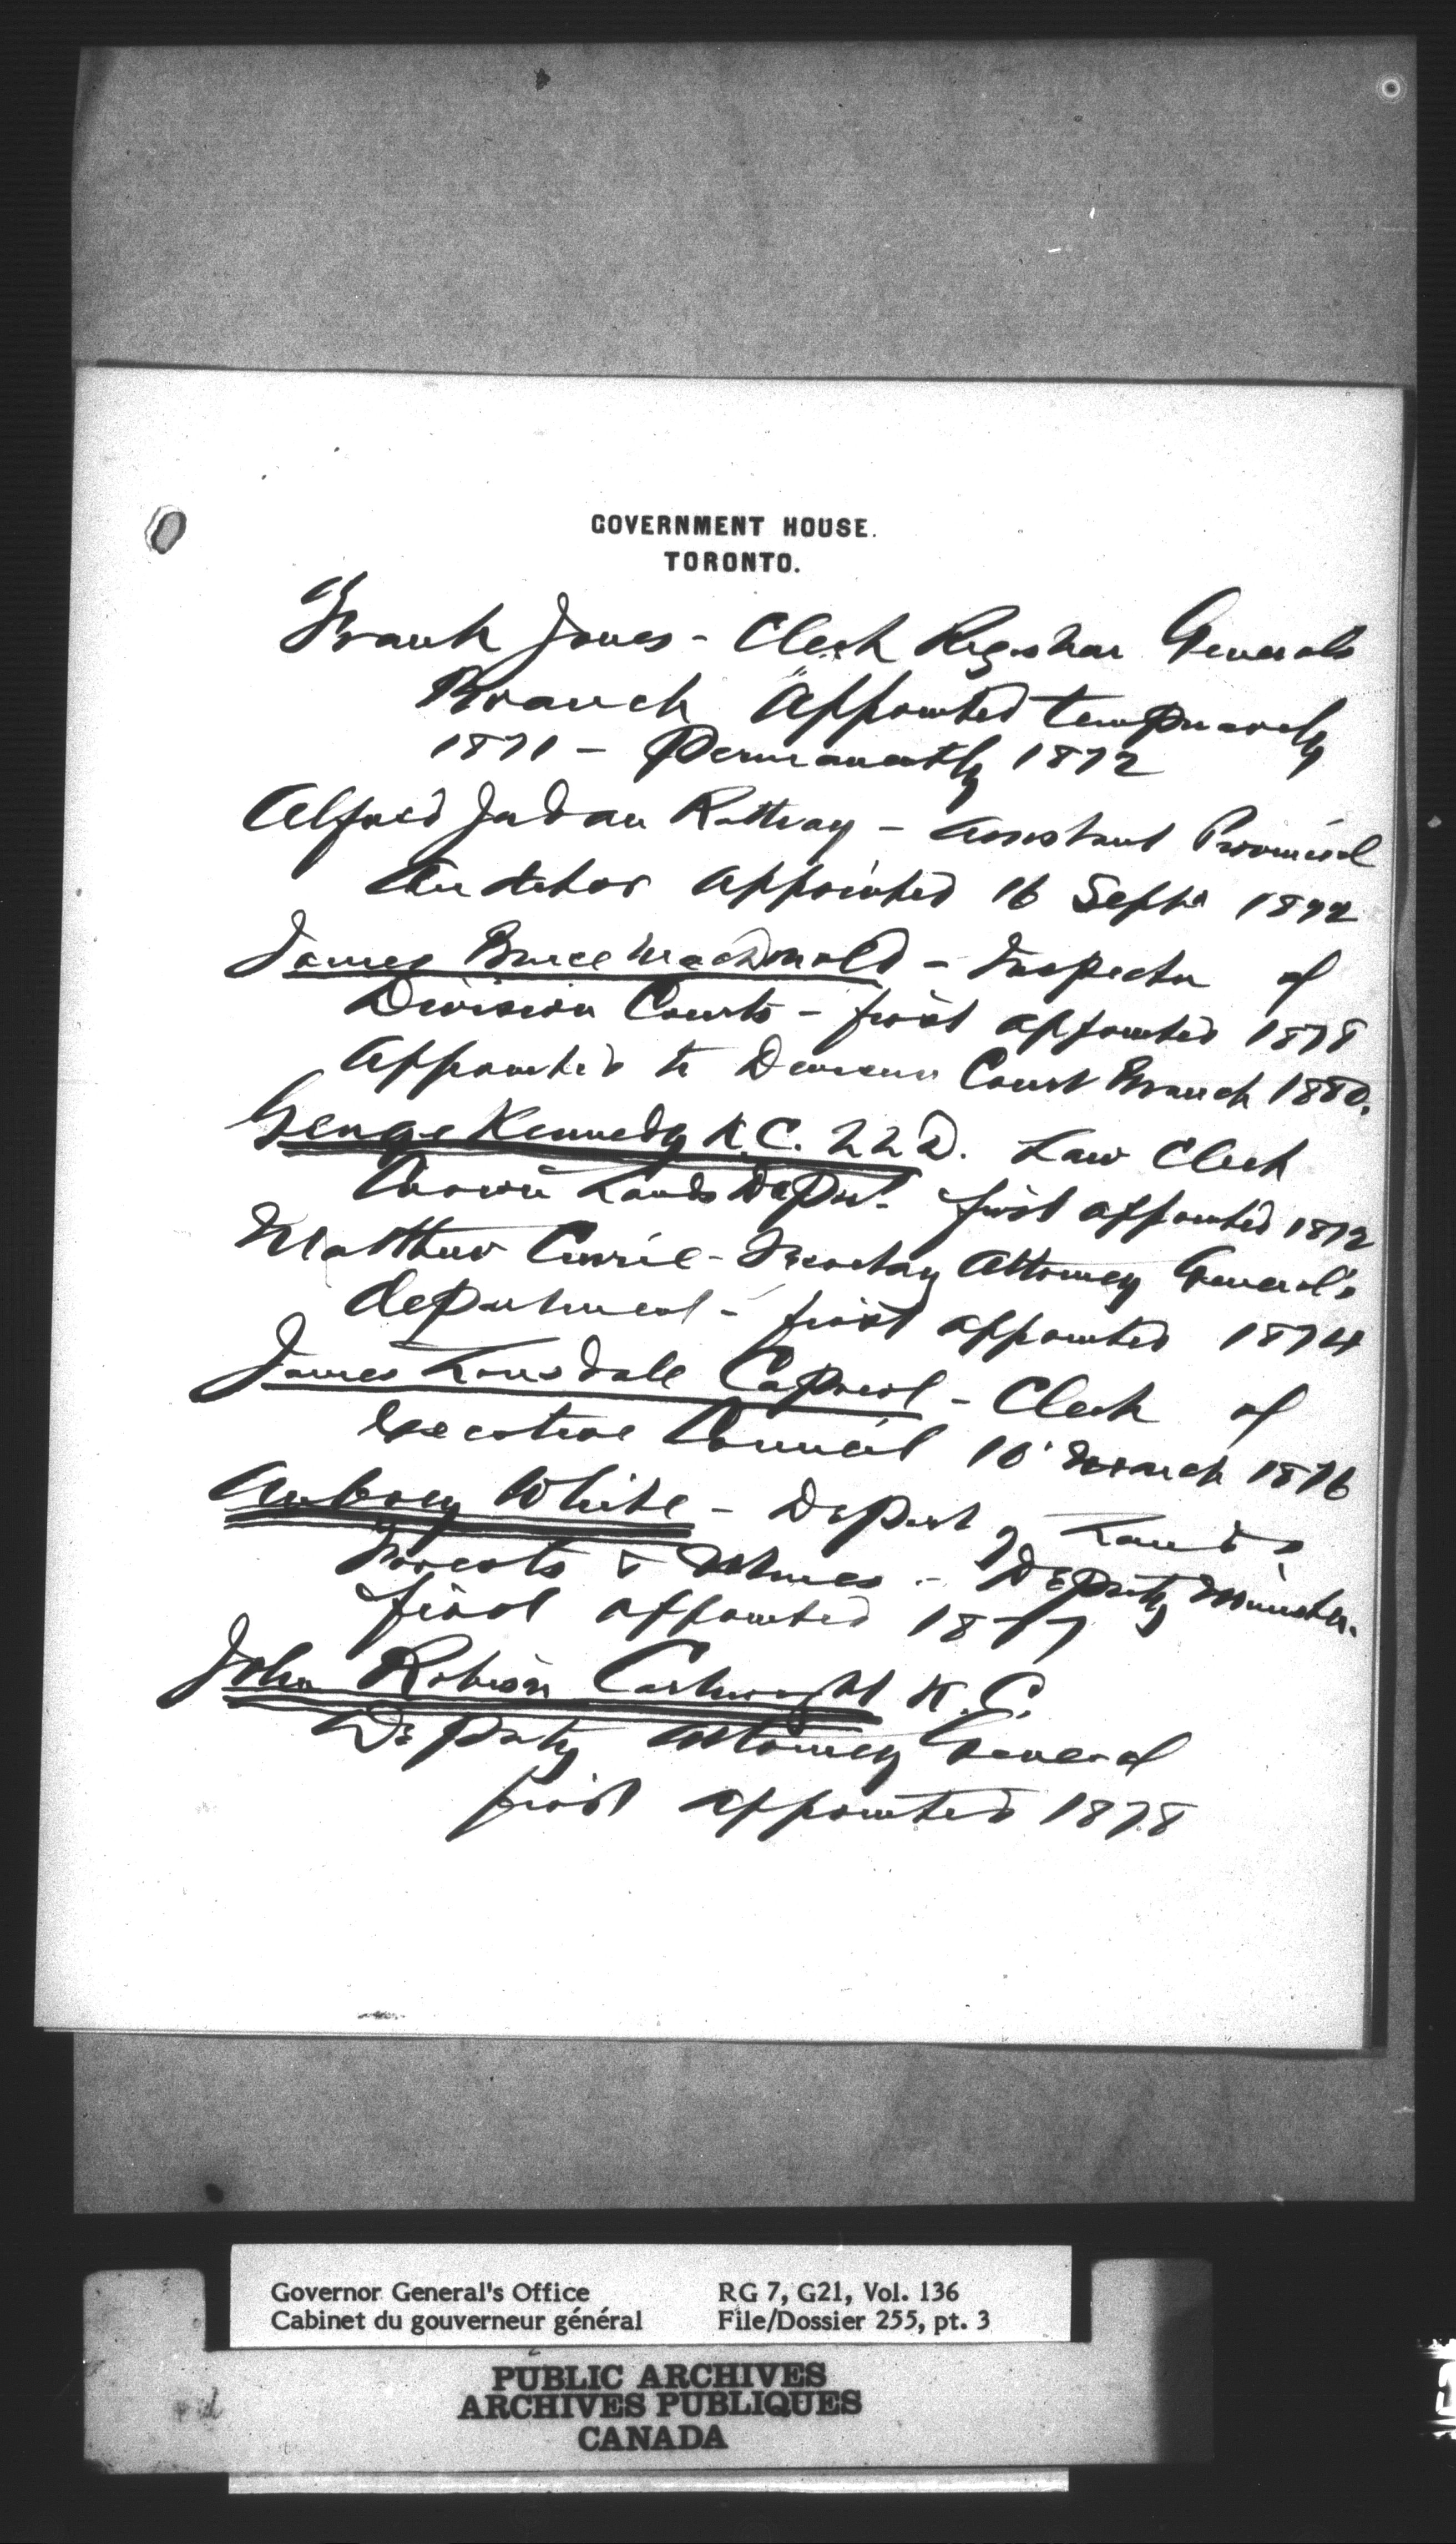 GOVERNMENT HOUSE.
TORONTO.
Frank Jones - Clerk Registrar Generals
Branch appointed temporarily
1871 - Permanently 1872
Alfred Jordan Rattray - Assistant Provincial
Auditor appointed 16 Septr 1872
James Bruce Macdonald - Inspector of
Division Courts - first appointed 1878
Appointed to Division Court Branch 1880.
George Kennedy K.C. LLD. Law Clerk
Crown Lands Dept. first appointed 1872
Matthew Currie - Secretary Attorney General's
department - first appointed 1874
James Lonsdale Capreol - Clerk of
Executive Council 10 March 1876
Aubrey White - Dept of Lands
Forests & Mines - Deputy Minister.
first appointed 1877
John Robison Cartwright K.C.
Deputy Attorney General
first appointed 1878
Governor General's Office RG 7, G21, Vol. 136
Cabinet du gouverneur général File/Dossier 255, pt. 3
PUBLIC ARCHIVES
ARCHIVES PUBLIQUES
CANADA